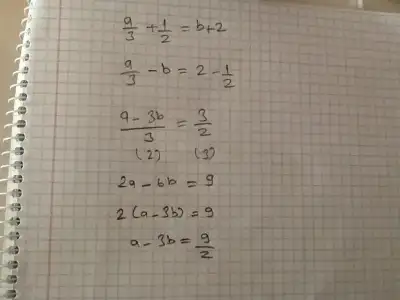 a/3 + 1/2 = b+2
a/3 - b = 2 - 1/2
(a - 3b)/3 = 3/2
(2) (3)
2a - 6b = 9
2(a - 3b) = 9
a - 3b = 9/2